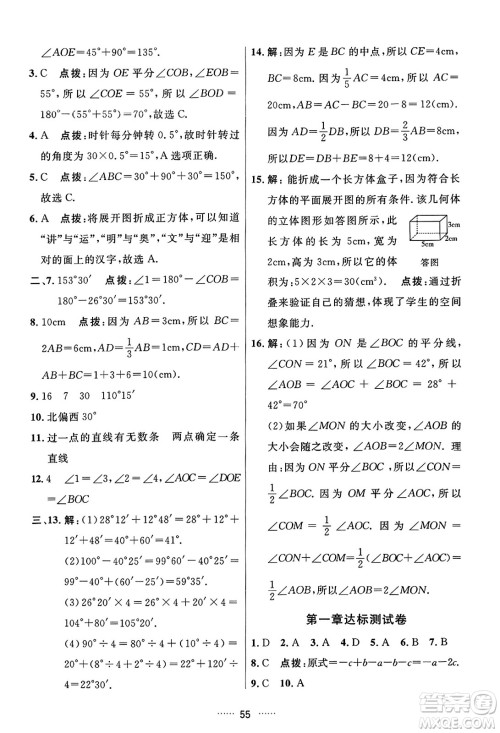 ∠AOE=45°+90°=135°.
3. C　点拨：因为 OE 平分∠COB，∠EOB=
55°，∠COE=∠EOB=55°，∠BOD=
180°-(55°+55°)=70°，故选 C.
4. A　点拨：时针每分钟转 0.5°，时针转过
的角度为 30×0.5°=15°，A 选项正确.
5. C　点拨：∠ABC=30°+90°=120°，
故选 C.
6. A　点拨：将展开图折成正方体，可以知道
“讲”与“运”，“明”与“奥”，“文”与“迎”是相
对的面.
二、7. 153°30′　点拨：∠1=∠2，∠2=
180°-26°30′=153°30′.
8. 10cm　点拨：因为 AB=6cm，所以 BC=
2AB=12cm，AD=1/3AB=2cm，CD=AD+
AB+BC=1+3+6=10(cm).
9. 16　7　30　110°30′
10. 北偏西 30°
11. 过一点的直线有无数条　两点确定一条
直线
12. 4　∠1=∠2，∠2=∠4，∠AOC=∠DOE
=∠BOC
三、13. 解：(1)28°12′+12°48′=40°+
12′+48′=40°+60′=41°.
(2)100°-40°25′=99°60′-40°25′
=59°35′.
(3)26°20′×4=26°×4+20′×4=
104°+80′=105°20′.
(4)90°÷4=(88°+2°)÷4=22°+
120′÷4=22°30′.
14. 解：因为 E 是 BC 的中点，所以 CE=
EB=4cm，因为 CE=1/5AC，所以 AC=
20cm，因为 BD=2/3AD，BC=2CE，所以
BC=8cm，AB=AC-BC=20-8=12(cm).
因为 BD=2/3AD，所以 AB=AD+1/2AD，
所以 AD=8cm，DB=AB-AD=4cm，
所以 DE=DB+BE=4+4=8(cm).
15. 解：能折成一个长方体盒子，符合长
方体的平面展开图的所有
条件.该几何体
的立体图形如答图所示，此
长方体的长为 5cm，宽为
2cm，高为 3cm，所以它的体
积为：5×2×3=30(cm³).可以通过折
叠来验证自己的猜想，体现了学生的空间
想象能力.
3cm
2cm
5cm
答图
16. 解：(1)因为 ON 是∠BOC 的平分线，
所以∠BOC=2∠BON=42°，所以
∠AOB=∠AOC+∠BOC=28°+42°
=70°.
(2)如果∠AOB 的大小改变，∠MON 的
大小会随之改变，∠MON=1/2∠AOB.
理由：因为 OM 是∠AOC 的平分线，所以
∠COM=1/2∠AOC，同理，∠CON=
1/2∠BOC，所以∠MON=∠CON+
∠COM=1/2∠AOC+1/2∠BOC=
1/2∠AOB，所以∠MON=1/2∠AOB.
第一章达标测试卷
1. D　2. A　3. C　4. A　5. A　6. B　7. B
8. C　点拨：原式=-c+b-a-b+a-c=-2c.
9. C　10. A
55